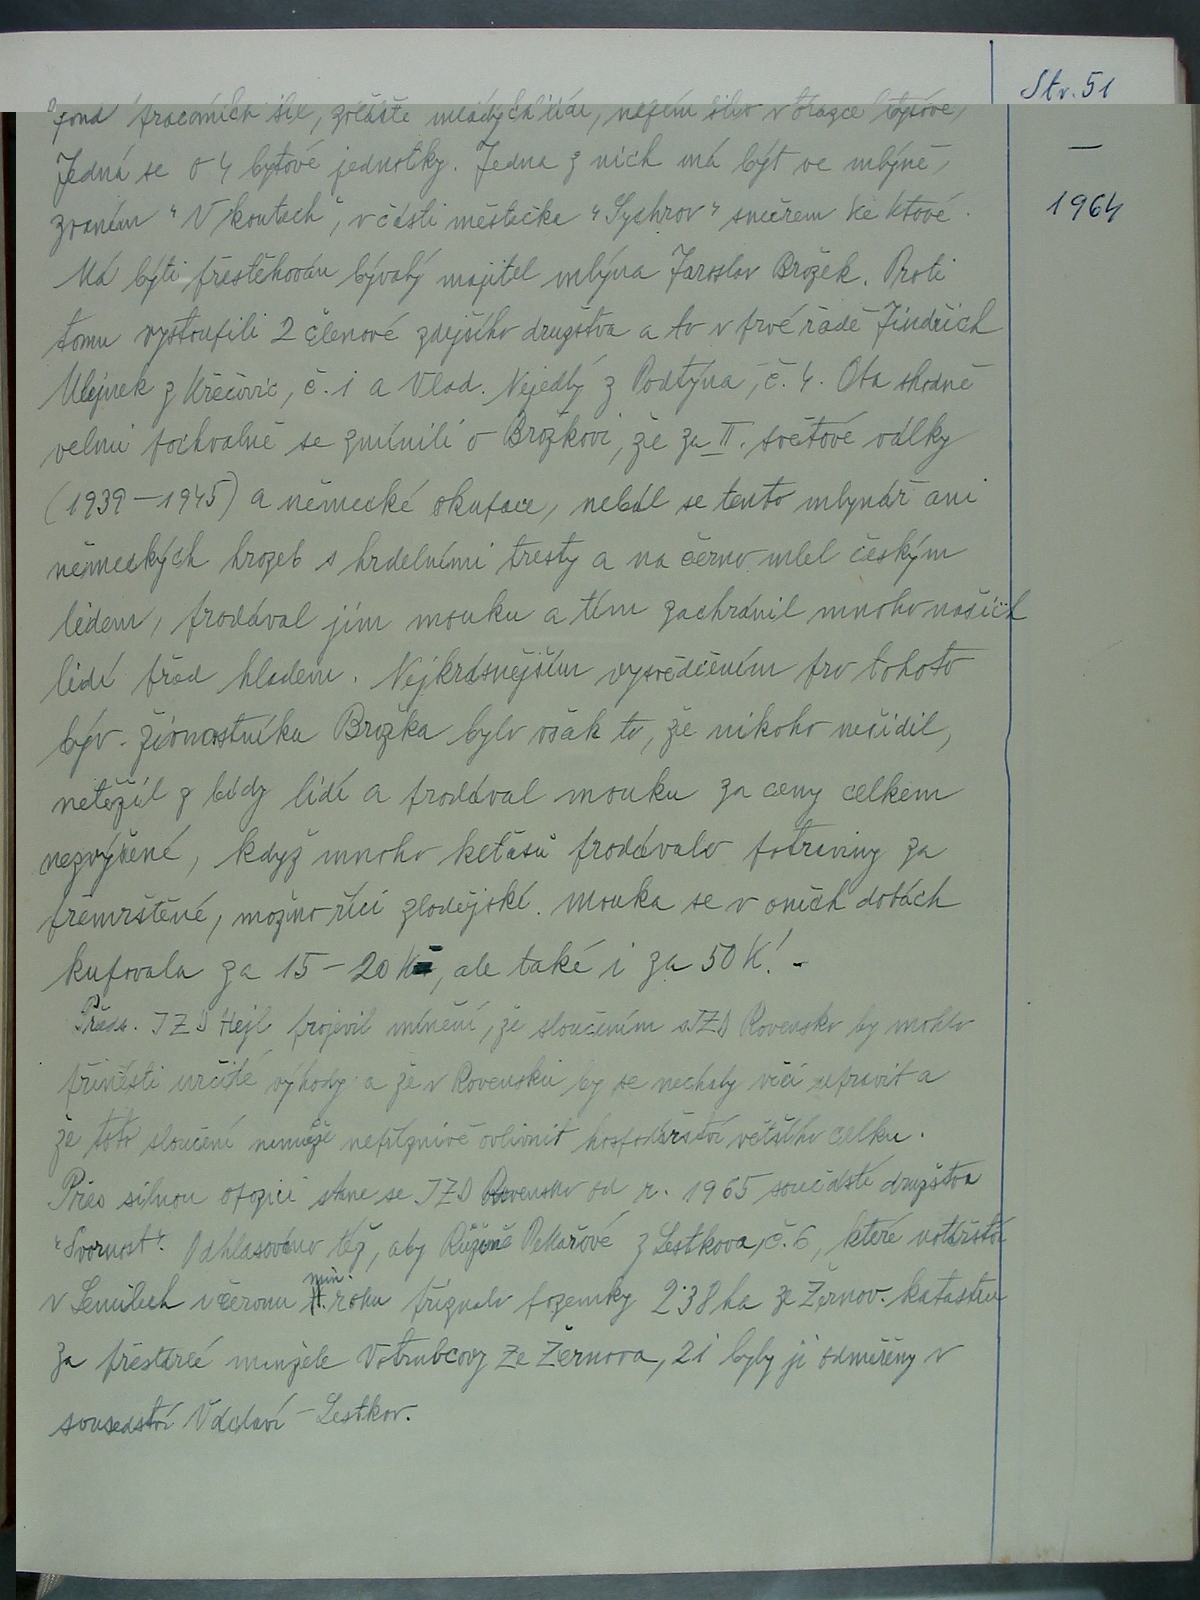 Str. 51
fond pracovních sil, zvláště mladých lidí, nejen slov v otázce bytové,
—
Jedná se o 4 bytové jednotky. Jedna z nich má být ve mlýně,
1964
zvaném "V koutech", v části městečka "Sychrov" směrem ke Ktové.
Má býti přestěhován bývalý majitel mlýna Jaroslav Brožek. Proti
tomu vystoupili 2 členové zdejšího družstva a to v prvé řadě Jindřich
Mlejnek z Křečovic, č. 1 a Vlad. Nejedlý z Podtýna, č. 4. Oba shodně
velmi pochvalně se zmínili o Brožkovi, že za II. světové války
(1939 – 1945) a německé okupace, nebál se tento mlynář ani
německých hrozeb s hrdelními tresty a na černo mlel českým
lidem, prodával jim mouku a tím zachránil mnoho našich
lidí před hladem. Nejkrásnějším vysvědčením pro tohoto
býv. živnostníka Brožka bylo však to, že nikoho nešidil,
netěžil z bídy lidí a prodával mouku za ceny celkem
nezvýšené, když mnoho keťasů prodávalo potraviny za
přemrštěné, možno říci zlodějské. Mouka se v oněch dobách
kupovala za 15 – 20 K, ale také i za 50 K! –
Předs. JZD Hejl projevil mínění, že sloučením s JZD Rovensko by mohlo
přinésti určité výhody a že v Rovensku by se nechaly věci upravit a
že toto sloučení nemůže nepříznivě ovlivnit hospodářství většího celku.
Přes silnou opozici stane se JZD Rovensko od r. 1965 součástí družstva
"Svornost". Odhlasováno též, aby Růženě Pekařové z Lestkova, č. 6, které notářství
v Semilech v červnu min. roku přiznalo pozemky 2.38 ha ze Žernov. katastru
za přestárlé manžele Votrubcovy ze Žernova, byly jí odměřeny v
sousedství Václaví – Lestkov.